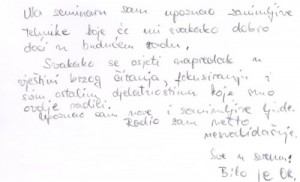 Na seminaru sam upoznao zanimljive
tehnike koje će mi svakako dobro
doći u budućem radu.
Svakako se osjeti napredak u
vještini brzog čitanja, fokusiranju i
svim ostalim djelatnostima koje smo
ovdje radili.
Upoznao sam nove i zanimljive ljude.
Radio sam nešto
nesvakidašnje.
Sve u svemu!
Bilo je OK.